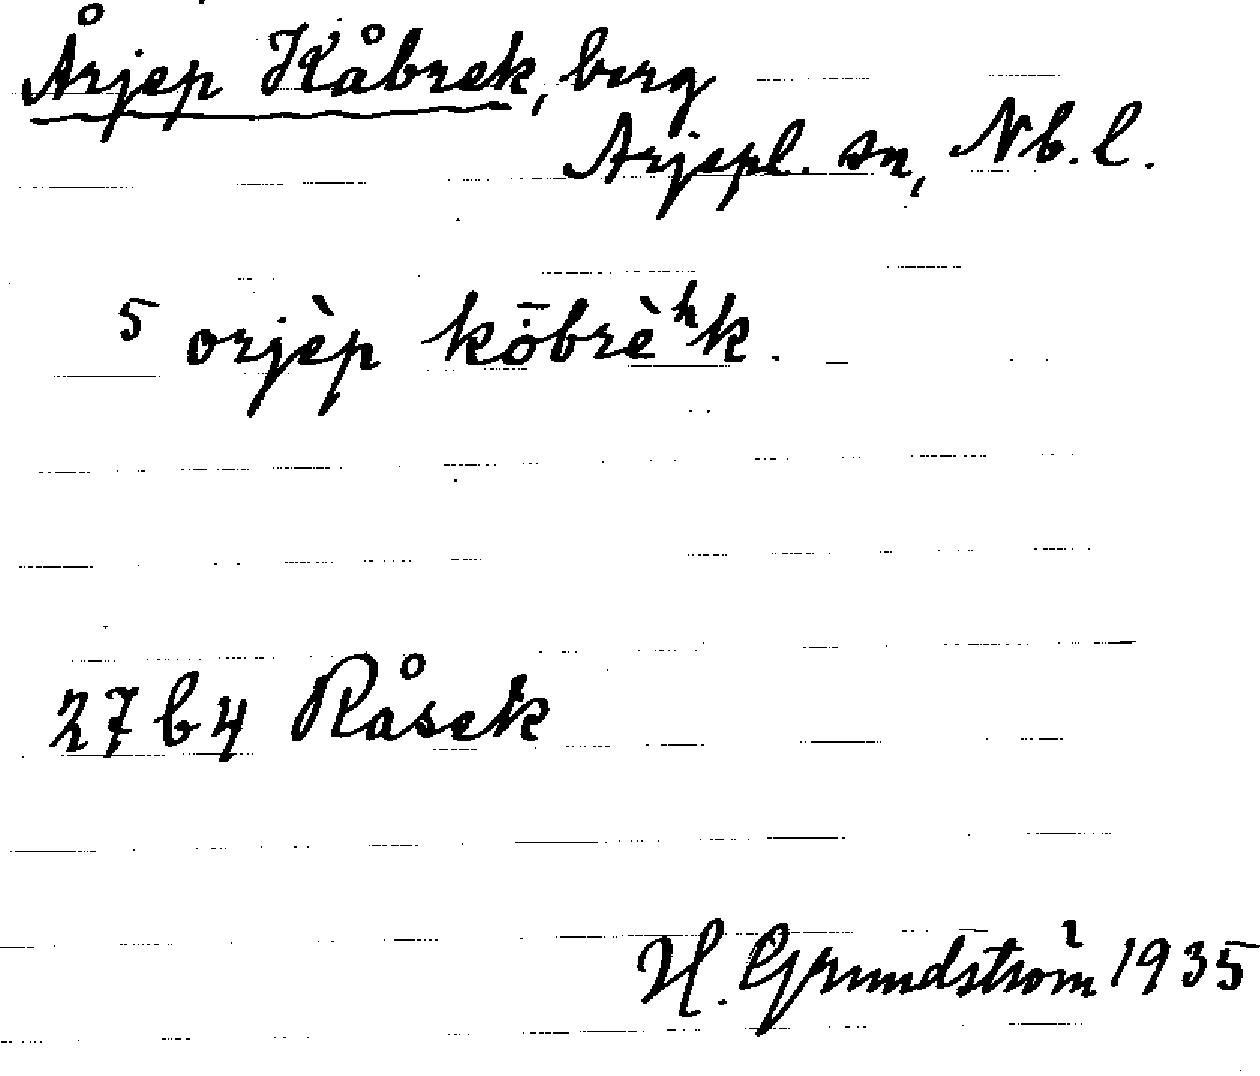 Årjep Kåbrek, berg
Arjepl. sn, Nb. l.
5 orjèp kō̇brèʰk.
27 b 4 Råsek
H. Grundström 1935